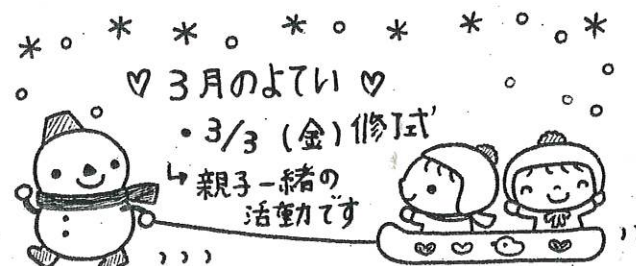 ♡ 3月のよてい ♡
・3/3 (金) 修了式
↳ 親子一緒の
活動です